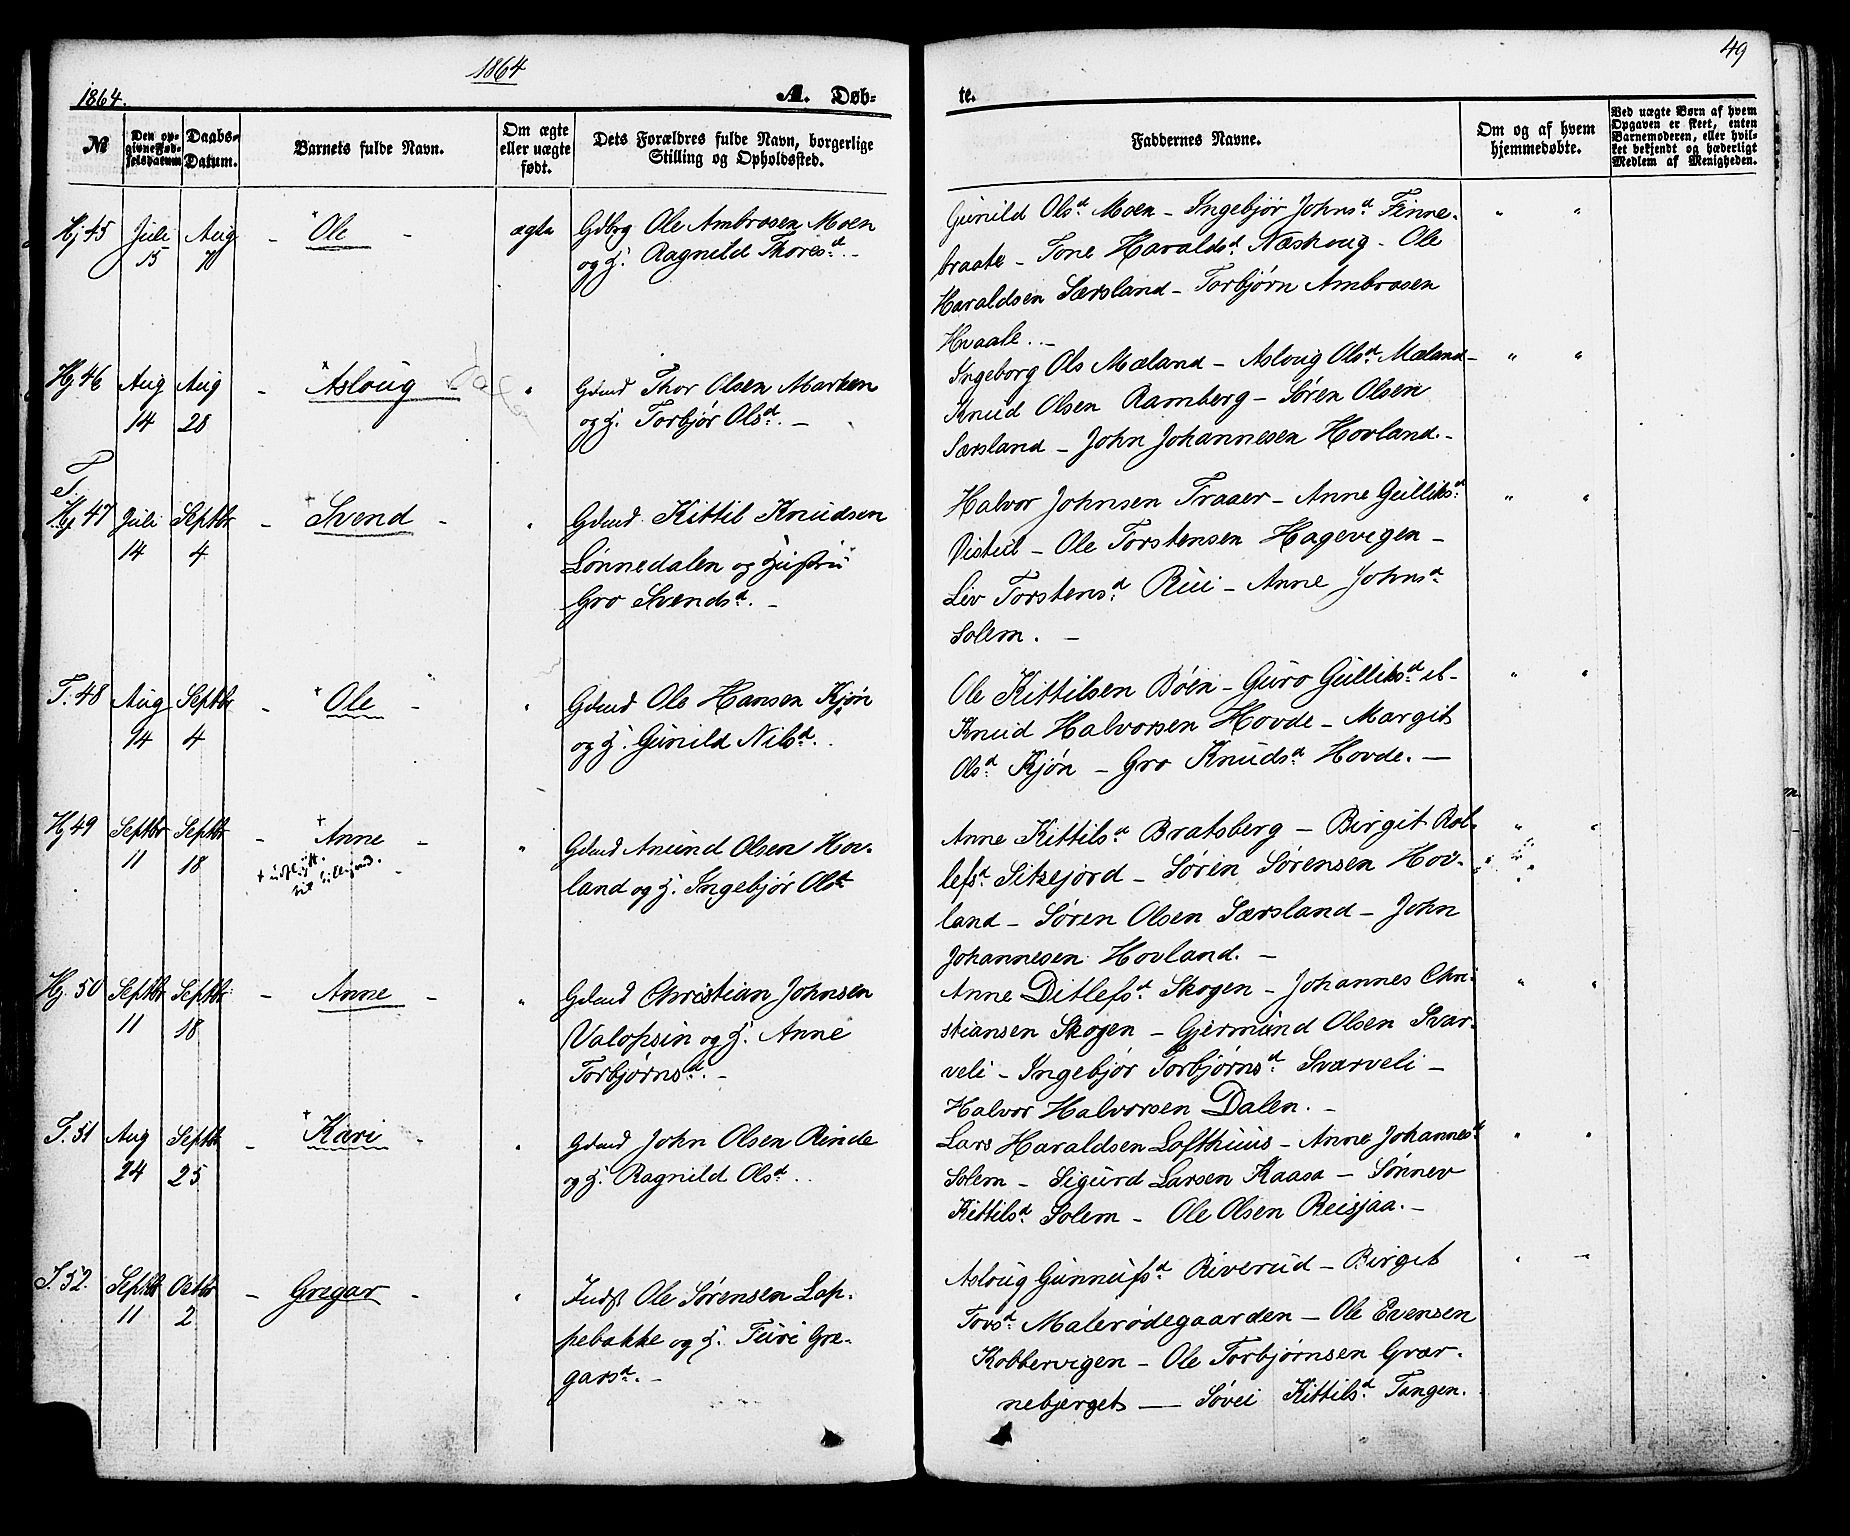 1864
49
1864.
A. Døb-
te.
№
Den op-
givne Fød-
selsdatum
Daabs-
Datum.
Barnets fulde Navn.
Om ægte
eller uægte
født.
Dets Forældres fulde Navn, borgerlige
Stilling og Opholdssted.
Faddernes Navne.
Om og af hvem
hjemmedøbte.
Ved uægte Børn af hvem
Opgaven er skeet, enten
Barnemoderen, eller hvil-
ket bekjendt og hæderligt
Medlem af Menigheden.
Hj 45 Juli 15 Aug 7 - Ole - ægte
Gdbrg Ole Ambrosen Moen
og H. Ragnild Thoresd. -
Gunild Olsd. Moen - Ingebjør Johnsd. Finne-
braate - Tone Haraldsd. Næshoug - Ole
Haraldsen Særsland - Torbjørn Ambrosen
Hvaale. -
" "
Hj 46 Aug 14 Aug 28 - Asloug "
Gdmd Thor Olsen Marken
og H. Torbjør Olsd. -
Ingeborg Ols Mæland - Asloug Olsd. Mæland -
Knud Olsen Ramberg - Søren Olsen
Særsland - John Johannesen Hovland. -
" "
T.
Hj 47 Juli 14 Septbr 4 - Svend - "
Gdmd Kittil Knudsen
Lønnedalen og Hustru
Gro Svendsd. -
Halvor Johnsen Traaer - Anne Gulliksd.
Vistul - Ole Torstensen Hagevigen -
Liv Torstensd. Rui - Anne Johnsd.
Solem. -
" "
T. 48 Aug 14 Septbr 4 - Ole - "
Gdmd Ole Hansen Kjøn
og H. Gunild Nilsd.
Ole Kittilsen Bøen - Guro Gulliksd. ib -
Knud Halvorsen Hovde - Margit
Olsd. Kjøn - Gro Knudsd. Hovde. -
" "
Hj 49 Septbr 11 Septbr 18 - Anne - "
+ udflyt.
til Lillesand.
Gdmd Anund Olsen Hov-
land og H. Ingebjør Olsd.
Anne Kittilsd. Bratsberg - Birgit Rol-
lefsd. Sitzejord - Søren Sørensen Hov-
land - Søren Olsen Særsland - John
Johannesen Hovland. -
" "
Hj. 50 Septbr 11 Septbr 18 - Anne - "
Gdmd Christian Johnsen
Valopsin og H. Anne
Torbjørnsd. -
Anne Ditlefsd. Skogen - Johannes Chri-
stiansen Skogen - Gjermund Olsen Svar-
veli - Ingebjør Torbjørnsd. Sværveli -
Halvor Halvorsen Dalen. -
" "
T. 51 Aug 24 Septbr 25 - Kari - "
Gdmd John Olsen Rinde
og H. Ragnild Olsd.
Lars Haraldsen Lofthuus - Anne Johannesd.
Solem - Sigurd Larsen Kaasa - Sønnev
Kittilsd. Solem - Ole Olsen Reisjaa. -
" "
T. 52. Septbr 11 Octbr 2 - Gregar - "
Indst Ole Sørensen Lop-
pebakke og H. Turi Gre-
garsd. -
Asloug Gunnufsd. Riverud - Birget
Torsd. Malerødegaarden - Ole Evensen
Kobbervigen - Ole Torbjørnsen Grær-
nebjerget - Søvei Kittilsd. Tangen.
" "